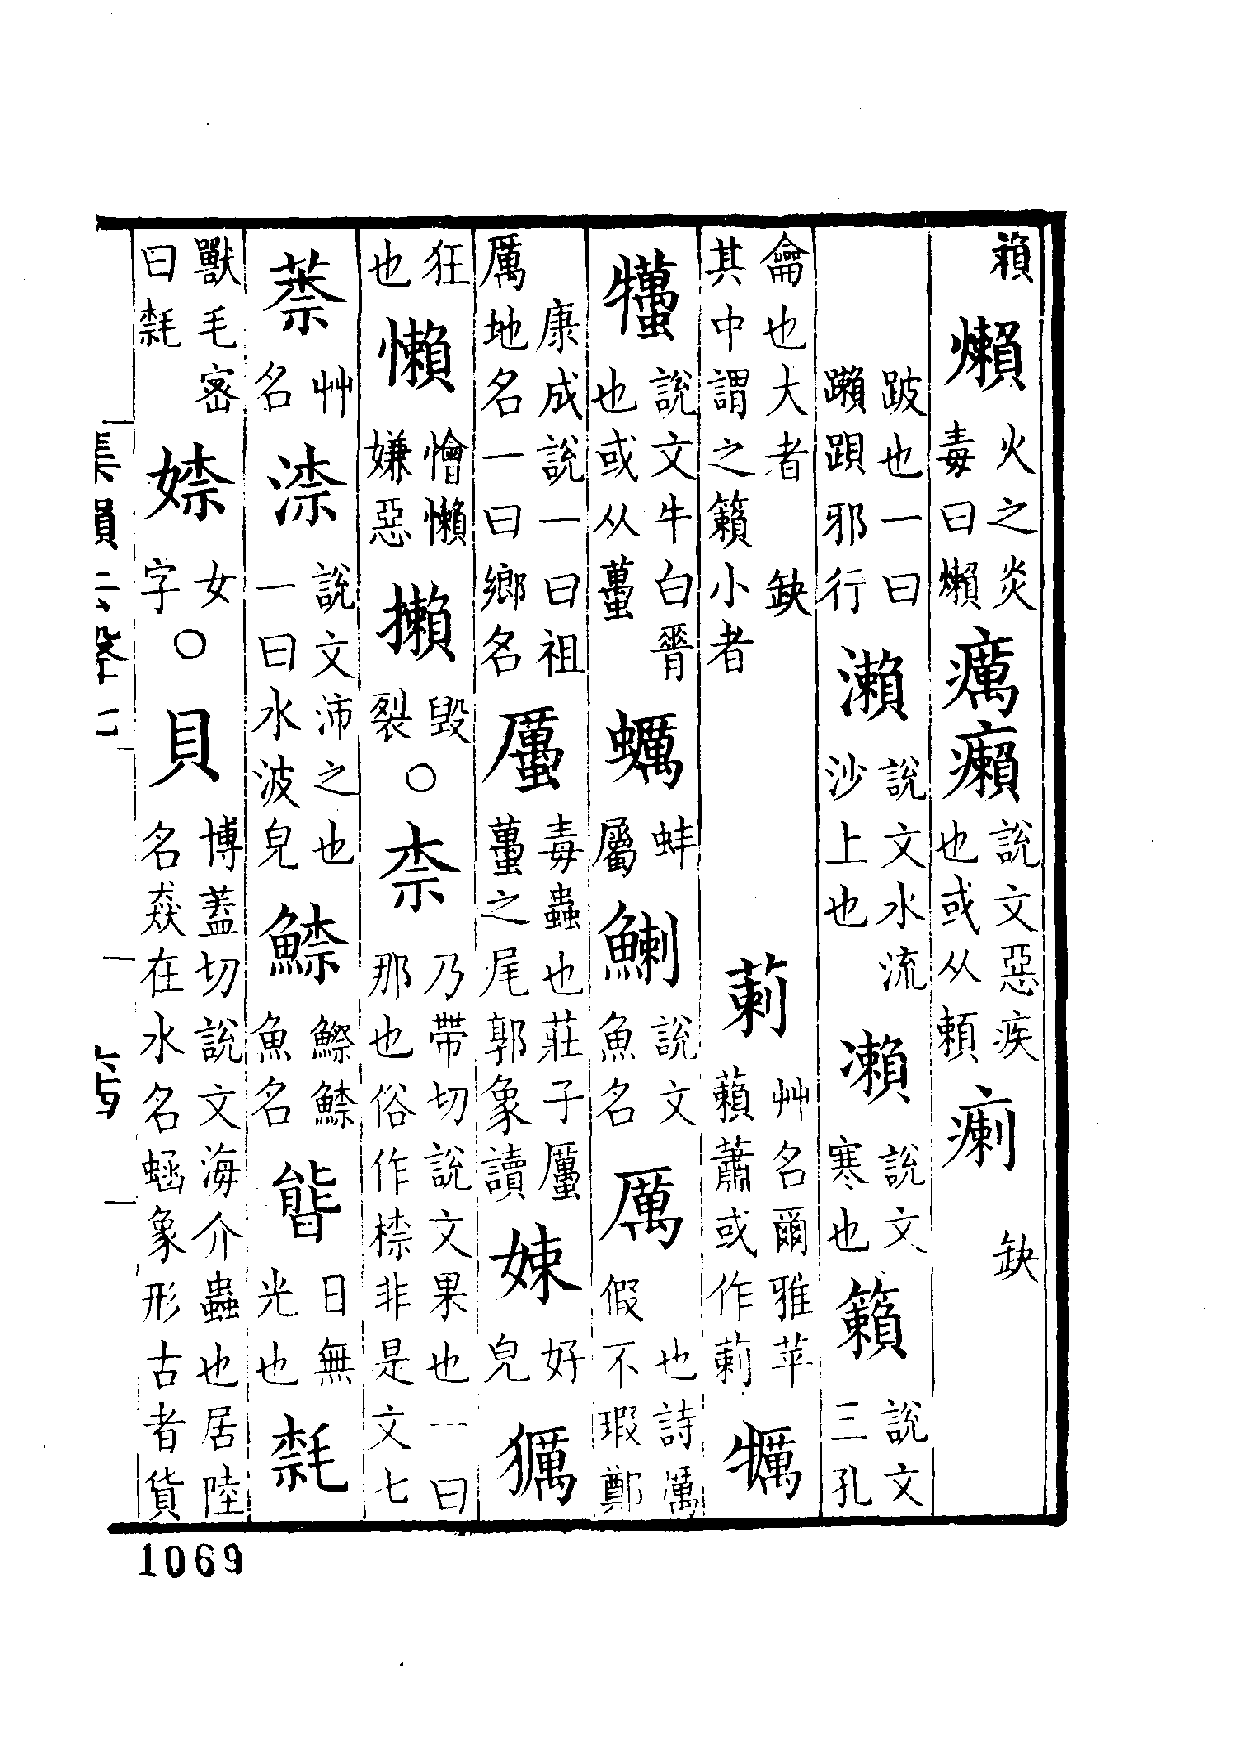 籟爤火之炎毒曰爤癘癩說文惡疾也或从賴瘌缺
跛也一曰躝跟邪行瀨說文水流沙上也瀨說文寒也籟說文三孔
龠也大者其中謂之籟小者缺莿艸名爾雅苹藾蕭或作莿犡
說文牛白脊也或从蠆蠣蚌屬鯻說文魚名厲也詩厲假不瑕鄭
康成說一曰祖厲地名一曰鄉名厲毒蟲也莊子厲蠆之尾郭象讀娕好皃獁
狂也懶憎懶嫌惡攋毀裂〇柰乃帶切說文果也一曰那也俗作㮈非是文七
萘艸名渿說文沛之也一曰水波皃䱞鰶䱞魚名㫮日無光也䅞
獸毛密曰䅞㛈女字〇貝博蓋切說文海介蟲也居陸名猋在水名蜬象形古者貨
集韻去聲七
1069